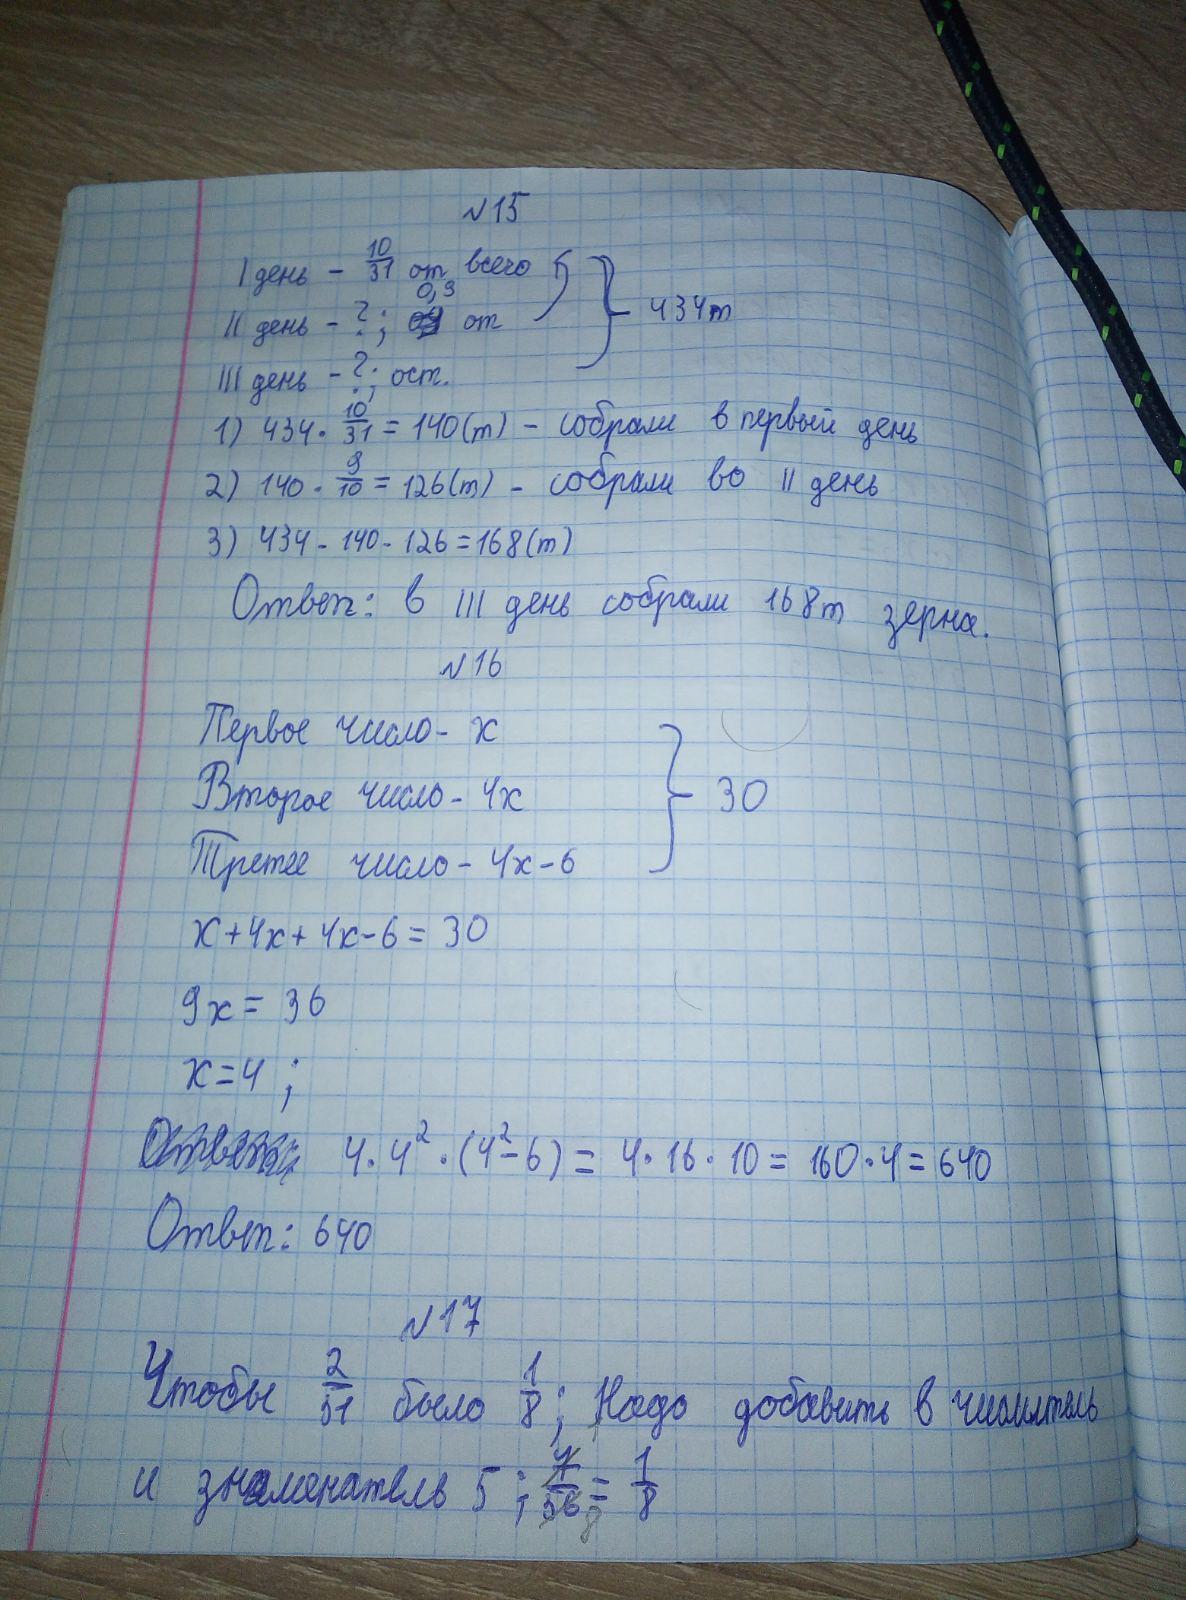 №15
I день - 10/31 от всего
II день - ?; 0,9 от
III день - ?; ост.
434т
1) 434 · 10/31 = 140(т) - собрали в первый день
2) 140 · 9/10 = 126(т) - собрали во II день
3) 434 - 140 - 126 = 168(т)
Ответ: в III день собрали 168т зерна.
№16
Первое число - x
Второе число - 4x
Третее число - 4x-6
30
x+4x+4x-6=30
9x=36
x=4;
4·4²·(4²-6)=4·16·10=160·4=640
Ответ: 640
№17
Чтобы 2/51 было 1/8; Надо добавить в числитель
и знаменатель 5; 7/56 = 1/8
8